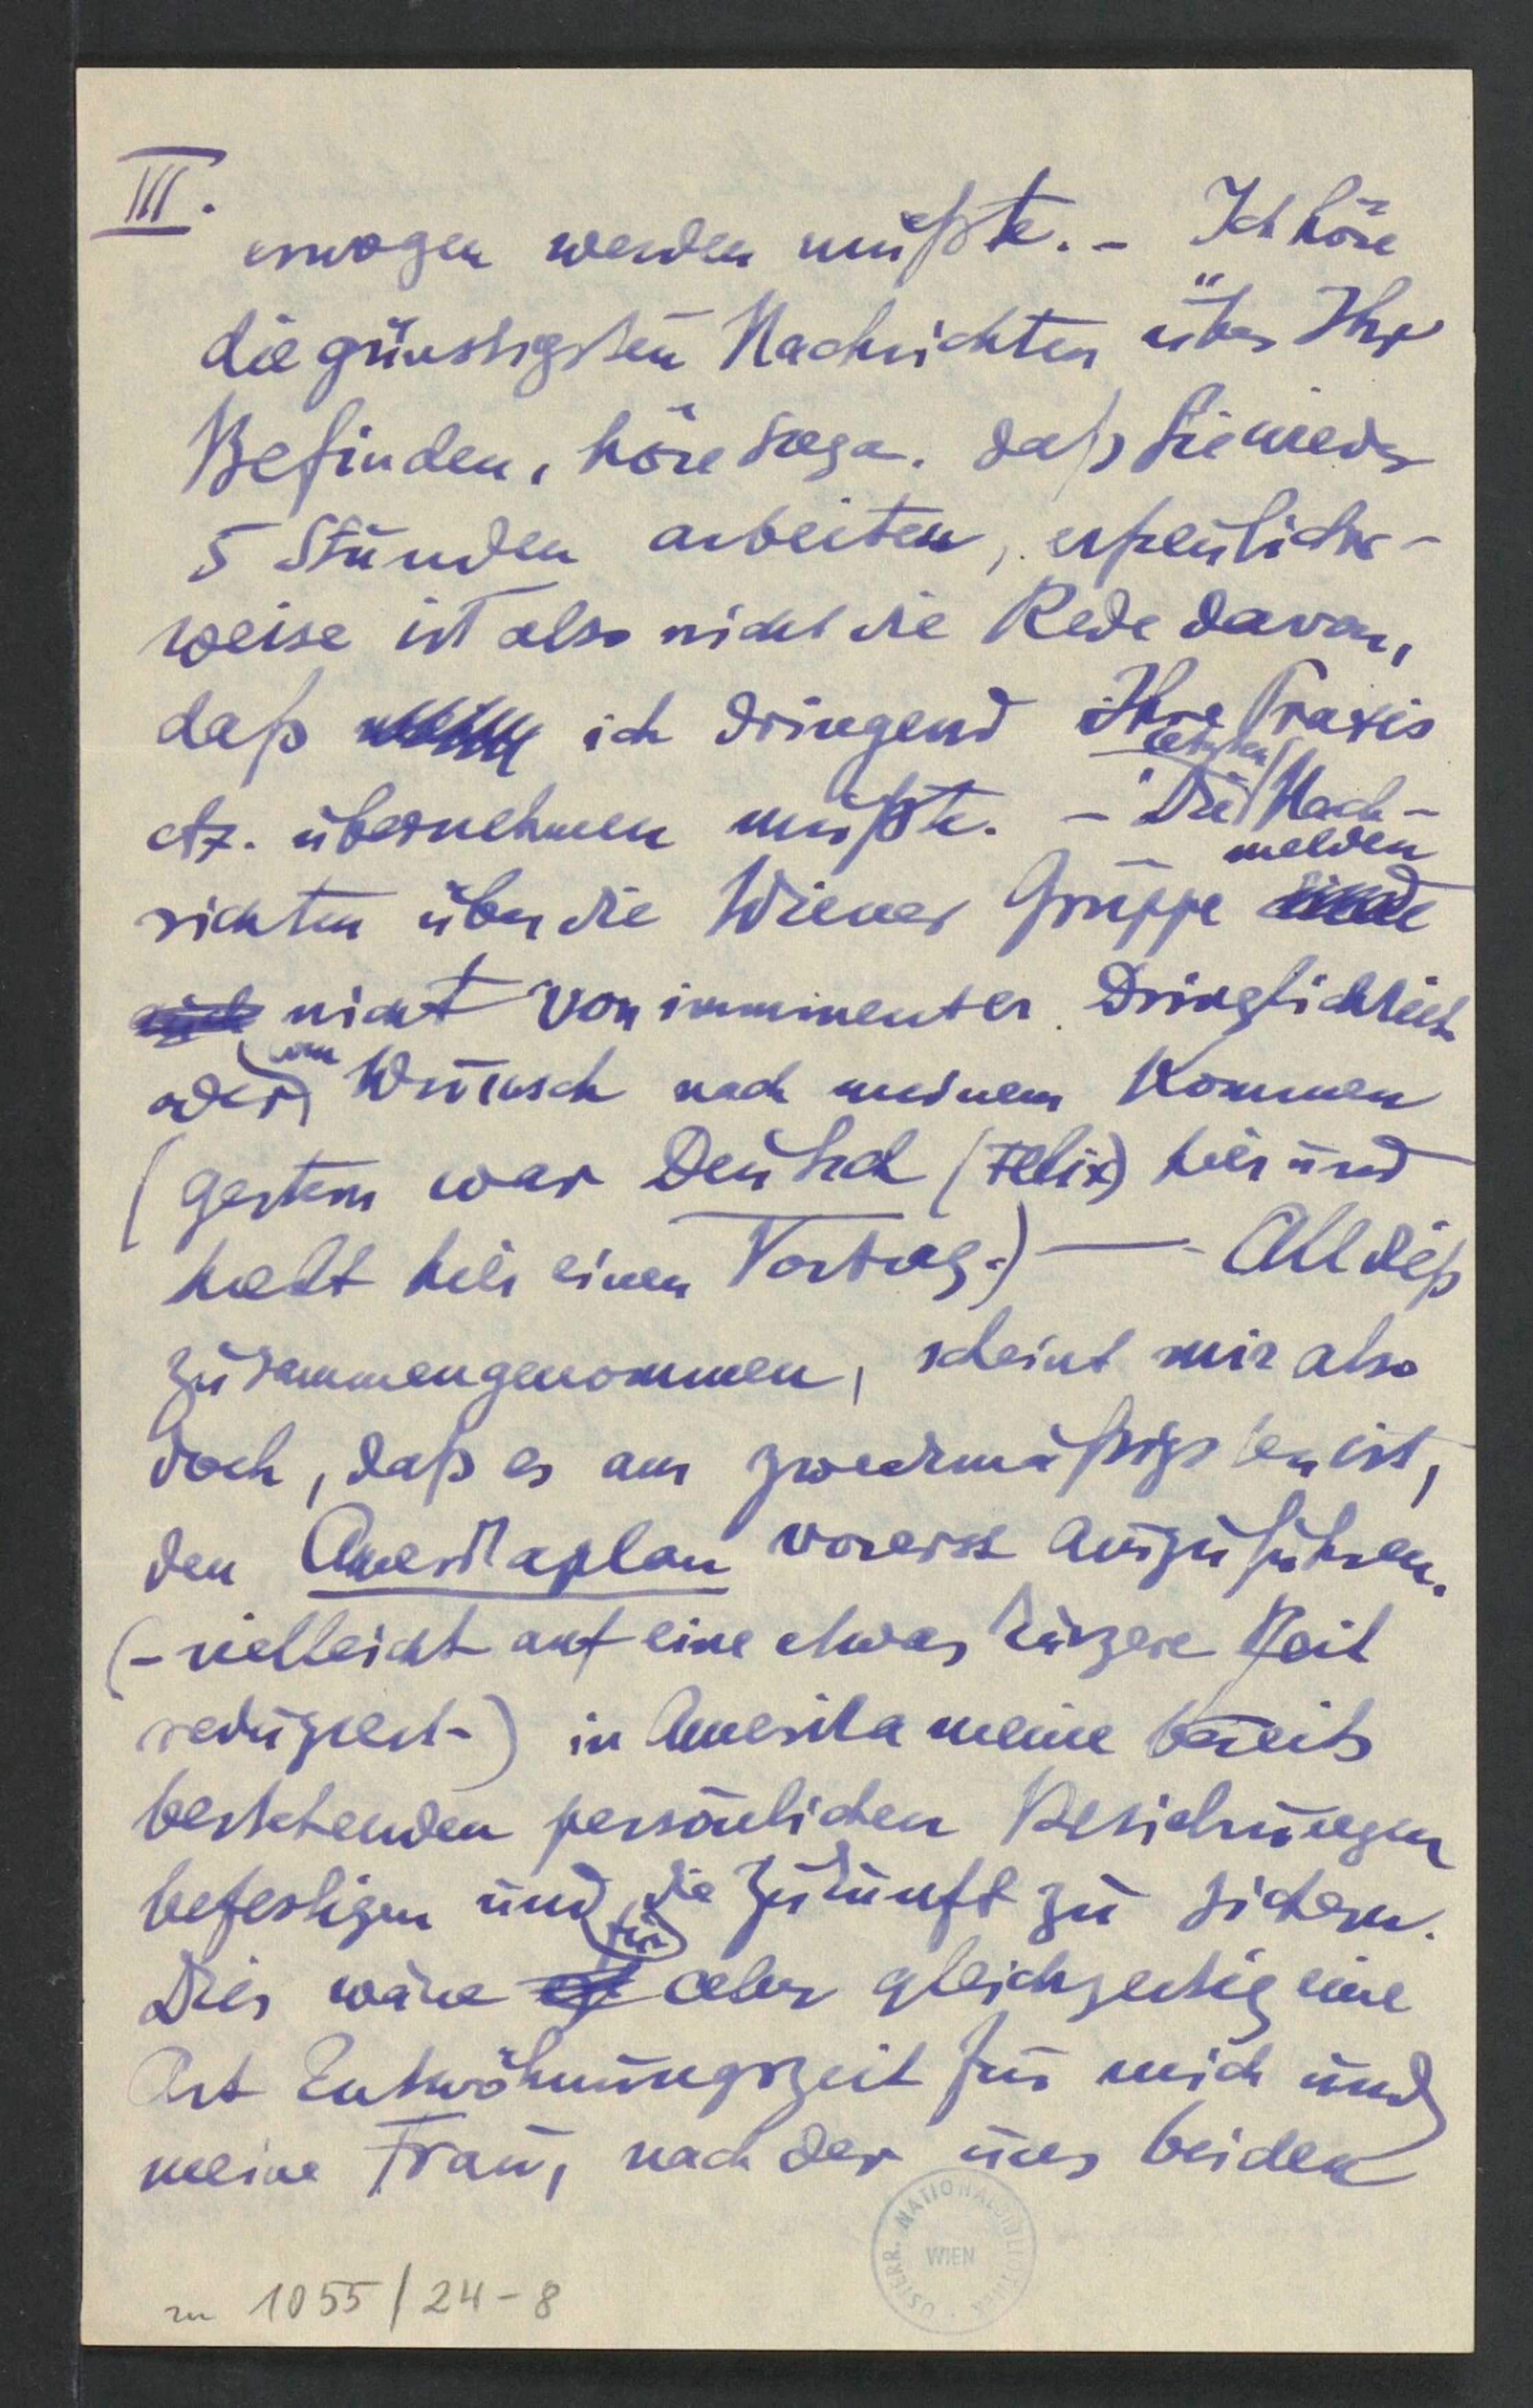 III.
erwogen werden müßte. - Ich höre
die günstigsten Nachrichten über Ihr
Befinden, höre sogar daß Sie wieder
5 Stunden arbeiten, erfreulicher-
weise ist also nicht die Rede davon,
daß ich dringend Ihre Praxis
etz. übernehmen müßte. - Die letzten Nach-
richten über die Wiener Gruppe melden
nicht von imminenter Dringlichkeit
oder von Wunsch nach meinem Kommen
(gestern war Deutsch (Felix) hier und
haelt hier einen Vortrag.) — All dieß
zusammengenommen, scheint mir also
doch, daß es am zweckmäßigsten ist,
den Amerikaplan vorerst auszuführen.
(- vielleicht auf eine etwas kürzere Zeit
reduziert -) in Amerika meine bereits
bestehenden persönlichen Beziehungen
befestigen und für die Zukunft zu sichern.
Dies wäre aber gleichzeitig eine
Art Entwöhnungszeit für mich und
meine Frau, nach der uns beiden
zu 1055/24-8
ÖSTERR. NATIONALBIBLIOTHEK
WIEN